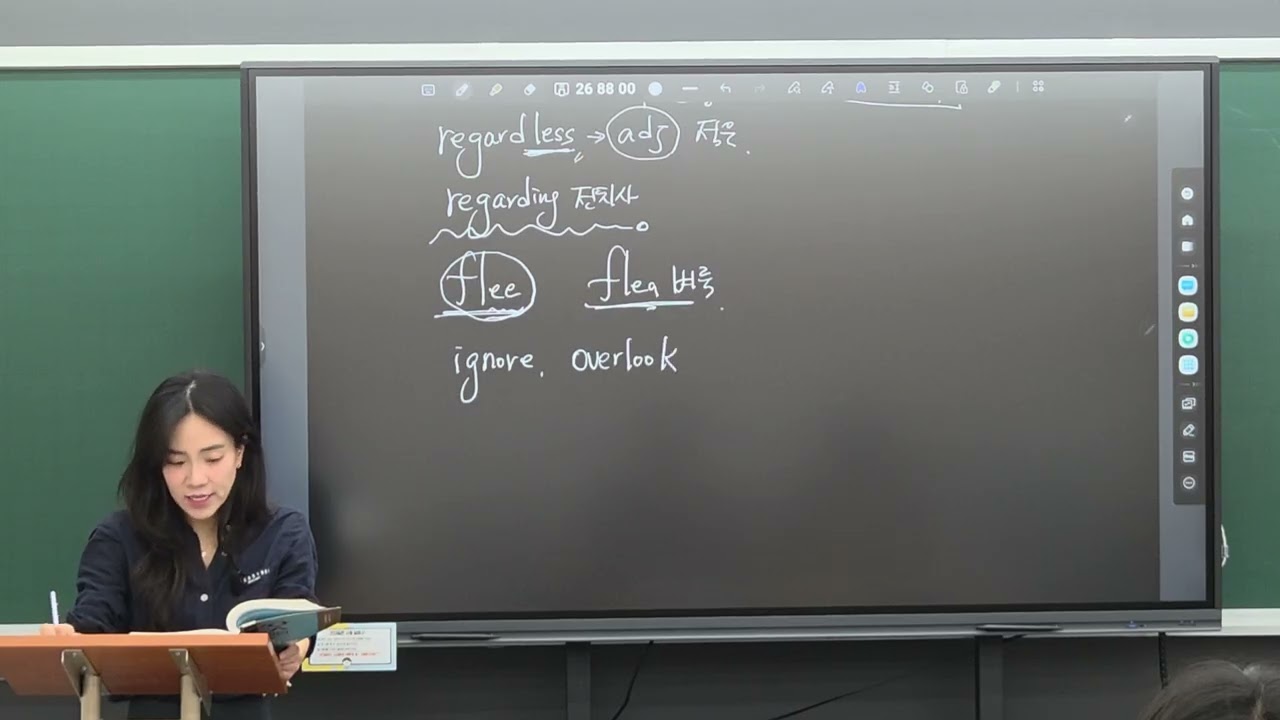 26 88 00
regardless → adj 적은.
regarding 전치사
flee flea 벼룩.
ignore. overlook